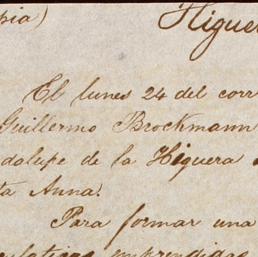 pia) Higuer
El lunes 24 del corr
Guillermo Brockmann
dalupe de la Higuera
ta Anna.
Para formar una
emprendidas